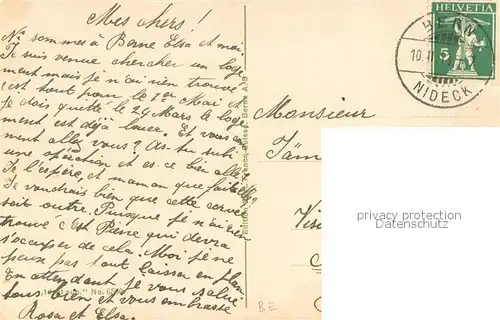 Mes chers!
Ns sommes à Berne Elsa et moi.
Je suis venue chercher un loge
ment mais je n'ai rien trouvé
c'est tout pour le 1er Mai et
je dois quitté le 24 Mars le loge
ment est déjà loué. Et vous com
ment allez vous? As-tu subi
une opération et es-ce bien allé?
Je l'espère, et maman que fait-elle?
Je voudrais bien que cette corvée
soit outre. Puisque je n'ai rien
trouvé c'est Piere qui devra
s'occuper de cela. Moi je ne
peux pas tout laisser en plan
En attendant je vous salue
tous bien et vous embrasse
Rosa et Elsa.
No. 65
HELVETIA
5
10. II
NIDECK
Monsieur
privacy protection
watermark
BE